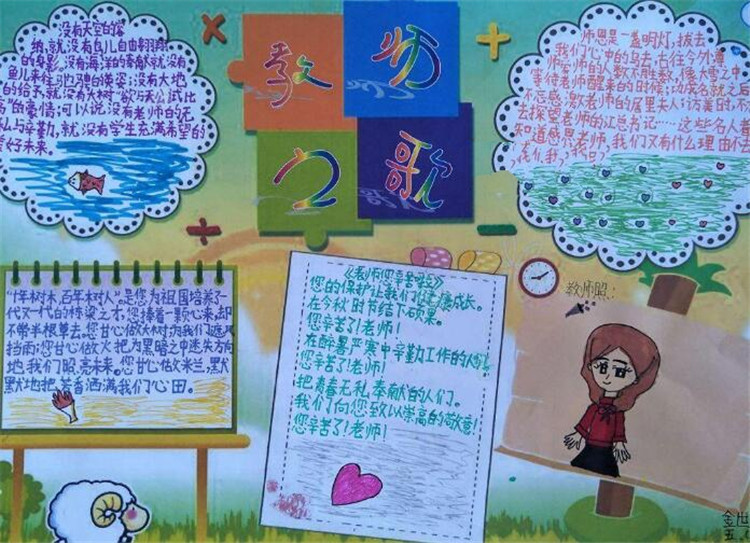 没有天空的容
纳,就没有鸟儿自由翱翔
的身影;没有海洋的奉献就没有
鱼儿来往驰骋的英姿;没有大地
的给予,就没有大树欲与天公试比
高的豪情;可以说,没有老师的无
私与辛勤,就没有学生充满希望的
美好未来。
教师
之歌
师恩是一盏明灯,拔去
我们心中的乌云。古往今来,尊
师爱师的人数不胜数,像大雪之中
等待老师醒来的时候;功成名就之后
不忘感激老师的居里夫人;访美时,不
去探望老师的江总书记……这些名人
知道感恩老师,我们又有什么理由不去
“十年树木,百年木对人”是您为祖国培养了一
代又一代的栋梁之才,您捧着一颗心来,却
不带半根草去。您甘心做大树为我们遮风
挡雨;您甘心做火把为黑暗之中迷失方向
地我们照亮未来。您甘心做米兰,默
默地把芳香洒满我们心田。
《老师您辛苦了》
您的保护让我们健康成长。
在今秋时节结下硕果。
您辛苦了!老师!
在酷暑严寒中辛勤工作的人们
您辛苦了!老师!
把青春无私奉献的人们。
我们向您致以崇高的敬意!
您辛苦了!老师!
教师照: